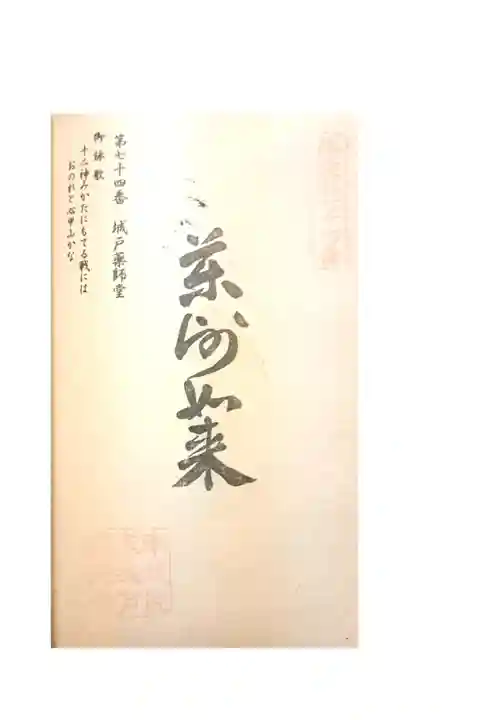 薬師如来
第七十四番 城戸薬師堂
御詠歌
十二神みかたにもてる戦には
おのれと心甲山かな